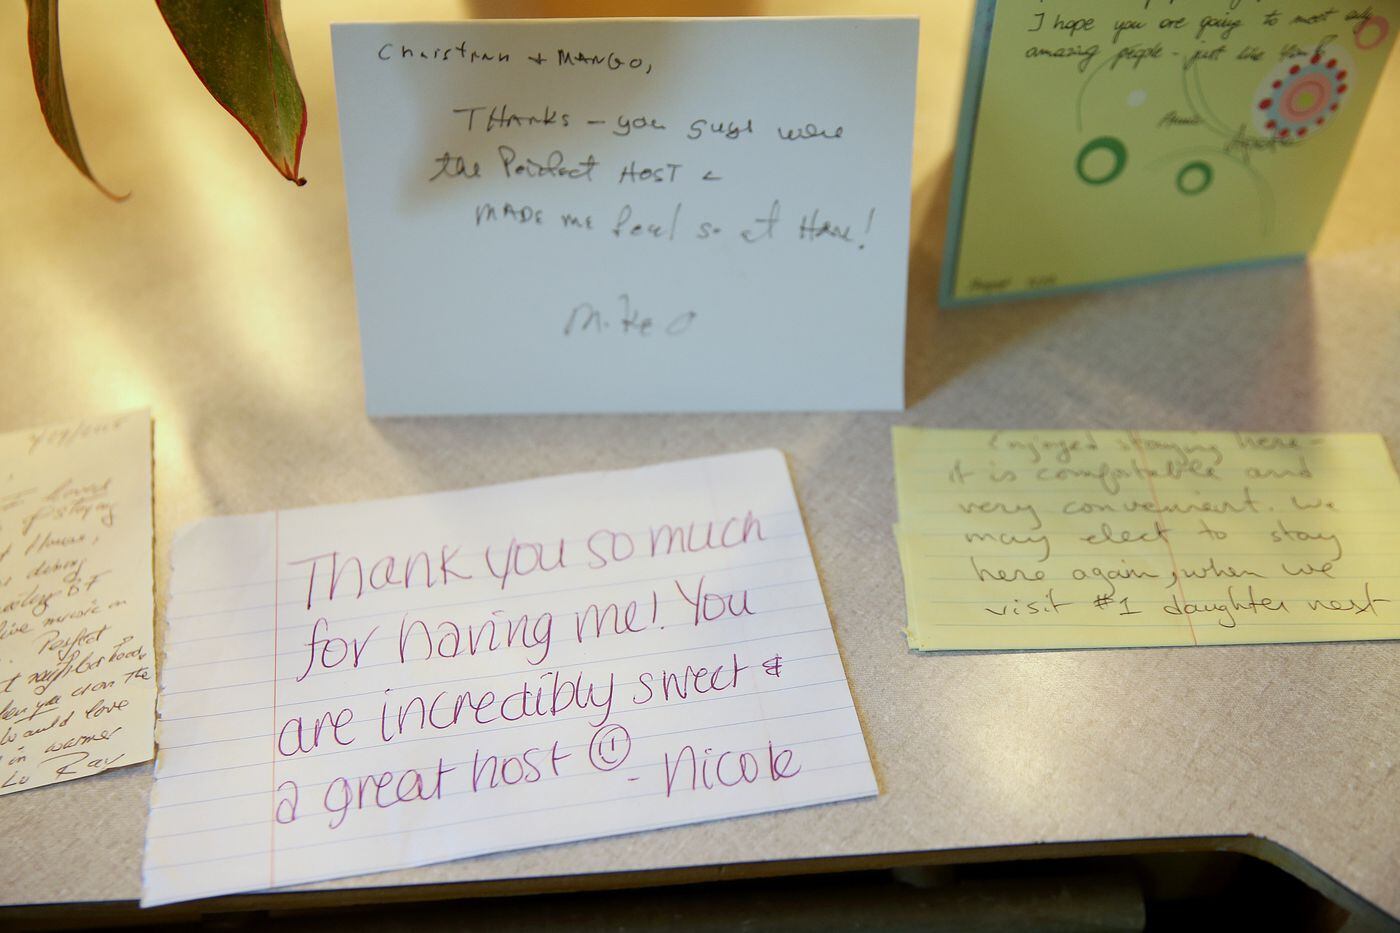 Christian + MANGO,
THANKS - you guys were
the Perfect HOST &
MADE ME feel so at Home!
Mike O
I hope you are going to meet only
amazing people - just like You!
Anna
Enjoyed staying here -
it is comfortable and
very convenient. We
may elect to stay
here again, when we
visit #1 daughter next
Thank you so much
for having me! You
are incredibly sweet &
a great host
- Nicole
loved
of staying
House,
live music in
Perfect
neighborhood
when you own the
would love
in warmer
Ray